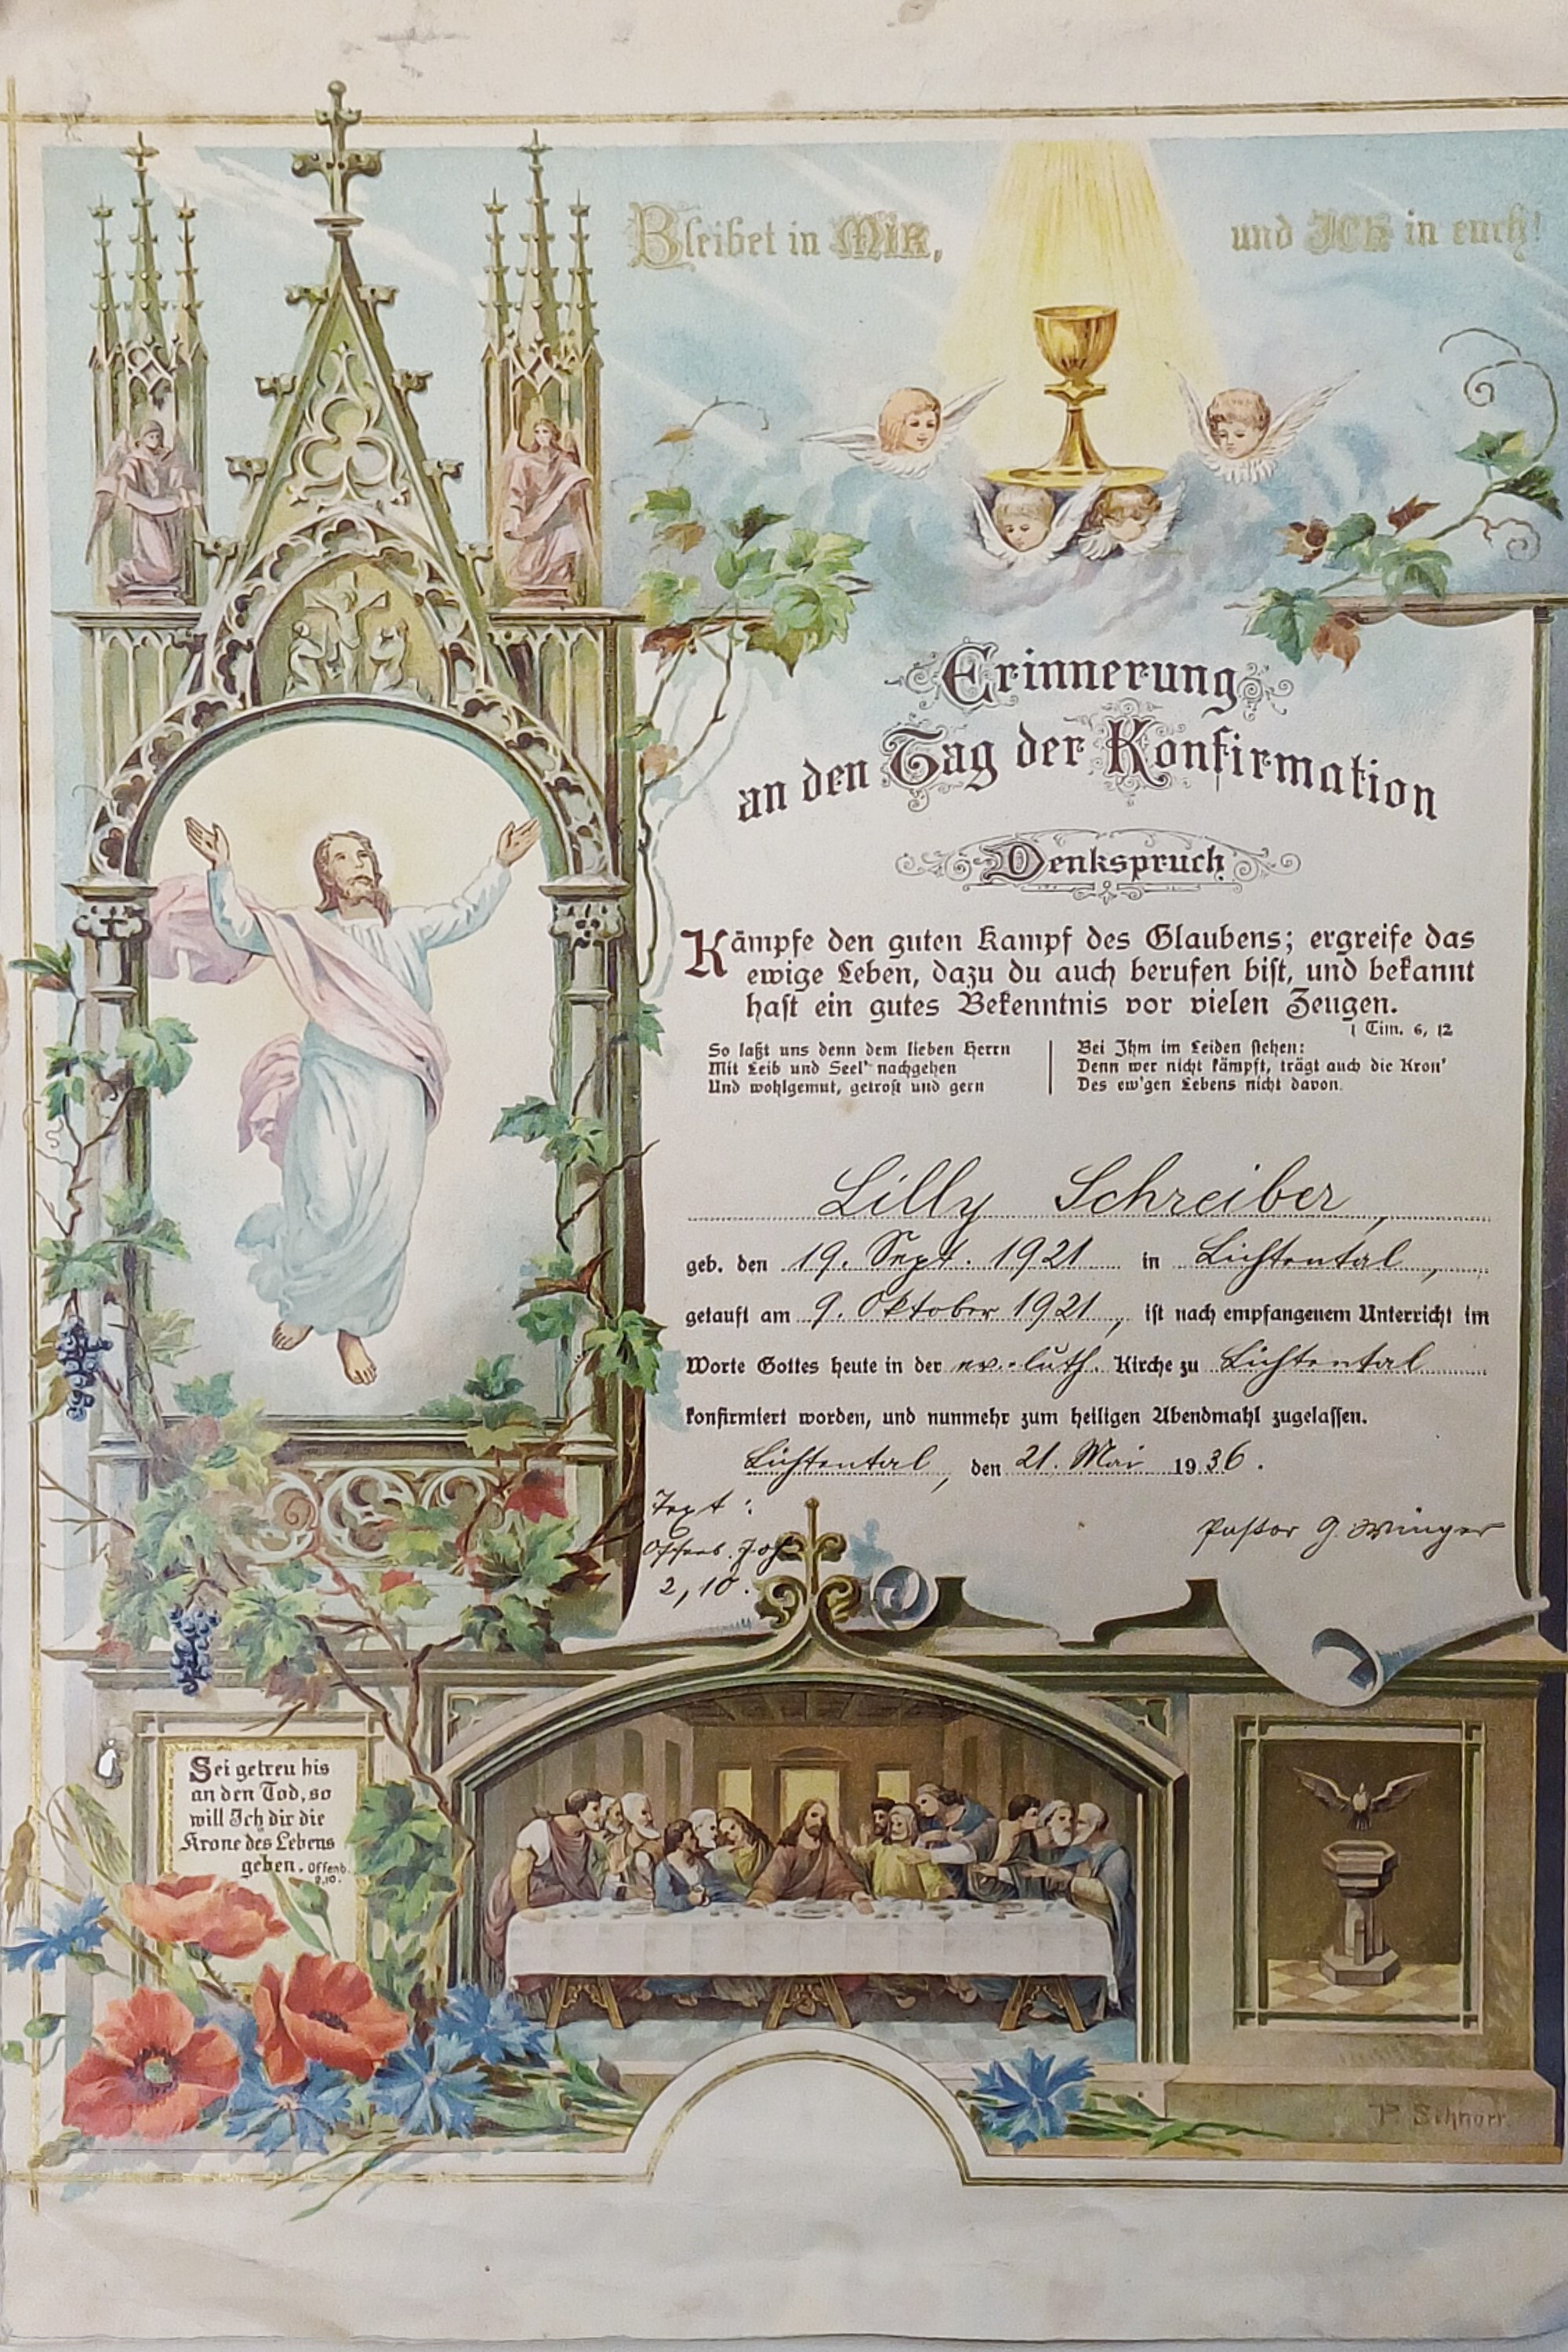 Bleibet in MIR, und ICH in euch!
Erinnerung
an den Tag der Konfirmation
Denkspruch
Kämpfe den guten Kampf des Glaubens; ergreife das
ewige Leben, dazu du auch berufen bist, und bekannt
hast ein gutes Bekenntnis vor vielen Zeugen.
1 Tim. 6, 12
So laßt uns denn dem lieben Herrn
Mit Leib und Seel' nachgehen
Und wohlgemut, getrost und gern
Bei Ihm im Leiden stehen:
Denn wer nicht kämpft, trägt auch die Kron'
Des ew'gen Lebens nicht davon.
Lilly Schreiber,
geb. den 19. Sept. 1921 in Lichtental,
getauft am 9. Oktober 1921, ist nach empfangenem Unterricht im
Worte Gottes heute in der ev.-luth. Kirche zu Lichtental
konfirmiert worden, und nunmehr zum heiligen Abendmahl zugelassen.
Lichtental, den 21. Mai 1936.
Text:
Offenb. Joh.
2, 10.
Pastor G. Winger
Sei getreu bis
an den Tod, so
will Ich dir die
Krone des Lebens
geben. Offenb.
2,10.
P. Schnorr.